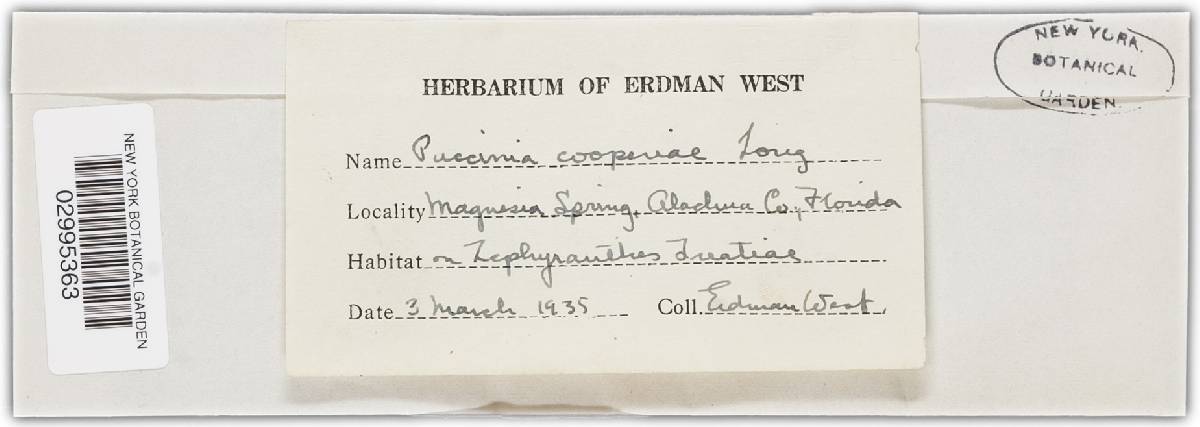 NEW YORK
BOTANICAL
GARDEN.
HERBARIUM OF ERDMAN WEST
Name Puccinia cooperiae Long
Locality Magnesia Spring, Alachua Co., Florida
Habitat on Zephyranthes Treatiae
Date 3 March 1935 Coll. Erdman West
NEW YORK BOTANICAL GARDEN
02995363